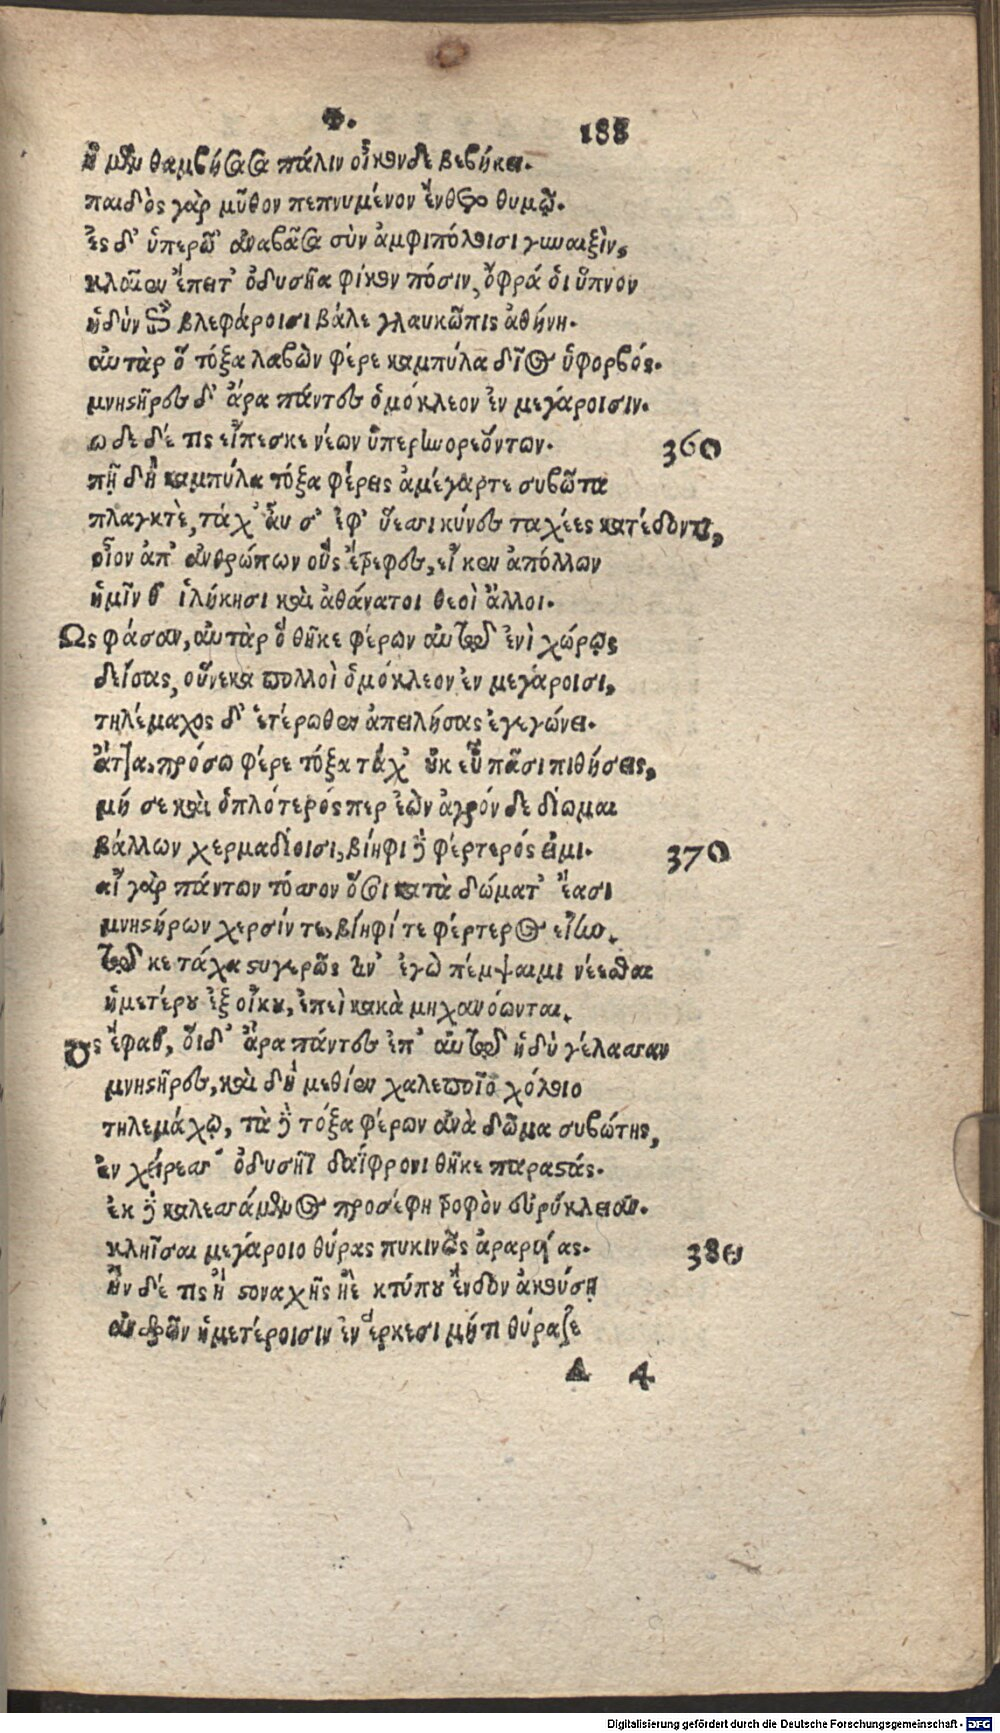 Φ. 188
ἡ μὲν θαμβήσασα πάλιν οἶκον δὲ βεβήκει.
παιδὸς γὰρ μῦθον πεπνυμένον ἔνθετο θυμῷ.
ἐς δ' ὑπερῷ' ἀναβᾶσα σὺν ἀμφιπόλοισι γυναιξὶν,
κλαῖεν ἔπειτ' ὀδυσῆα φίλον πόσιν, ὄφρά οἱ ὕπνον
ἡδὺν ἐπὶ βλεφάροισι βάλε γλαυκῶπις ἀθήνη.
αὐτὰρ ὃ τόξα λαβὼν φέρε καμπύλα δῖος ὑφορβός.
μνηστῆρες δ' ἄρα πάντες ὁμόκλεον ἐν μεγάροισιν.
ὧ δε δέ τις εἴπεσκε νέων ὑπερηνορεόντων. 360
πῇ δὴ καμπύλα τόξα φέρεις ἀμέγαρτε συβῶτα
πλαγκτὲ, τάχ' αὖ σ' ἐφ' ὕεσσι κύνες ταχέες κατέδονται,
οἶον ἀπ' ἀνθρώπων οὓς ἔτρεφες, εἴ κεν ἀπόλλων
ἡμῖν θ' ἱλήκησι καὶ ἀθάνατοι θεοὶ ἄλλοι.
Ὣς φάσαν, αὐτὰρ ὃ θῆκε φέρων αὐτῇ ἐνὶ χώρῃ
δείσας, οὕνεκα πολλοὶ ὁμόκλεον ἐν μεγάροισι,
τηλέμαχος δ' ἑτέρωθεν ἀπειλήσας ἐγεγώνει.
ἄττα, πρόσω φέρε τόξα τάχ' οὐκ εὖ πᾶσι πιθήσεις,
μή σε καὶ ὁπλότερός περ ἐὼν ἀγρόν δε δίωμαι
βάλλων χερμαδίοισι, βίηφι δὲ φέρτερός εἰμι. 370
αἲ γὰρ πάντων τόσσον ὅσοι κατὰ δώματ' ἔασι
μνηστήρων χερσίν τε, βίηφί τε φέρτερος εἴην.
τῷ κε τάχα στυγερῶς τιν' ἐγὼ πέμψαιμι νέεσθαι
ἡμετέρου ἐξ οἴκου, ἐπεὶ κακὰ μηχανόωνται.
Ὣς ἔφαθ', οἵδ' ἄρα πάντες ἐπ' αὐτῷ ἡδὺ γέλασσαν
μνηστῆρες, καὶ δὴ μεθίεν χαλεποῖο χόλοιο
τηλεμάχῳ, τὰ δὲ τόξα φέρων ἀνὰ δῶμα συβώτης,
ἐν χείρεσσ' ὀδυσῆϊ δαΐφρονι θῆκε παραστάς.
ἐκ δὲ καλεσσάμενος προσέφη τροφὸν εὐρύκλειαν.
κληῖσαι μεγάροιο θύρας πυκινῶς ἀραρυίας. 380
ἢν δέ τις ἢ στοναχῆς ἠὲ κτύπου ἔνδον ἀκούσῃ
ἀνδρῶν ἡμετέροισιν ἐν ἕρκεσι μή τι θύραζε
A 4
Digitalisierung gefördert durch die Deutsche Forschungsgemeinschaft - DFG